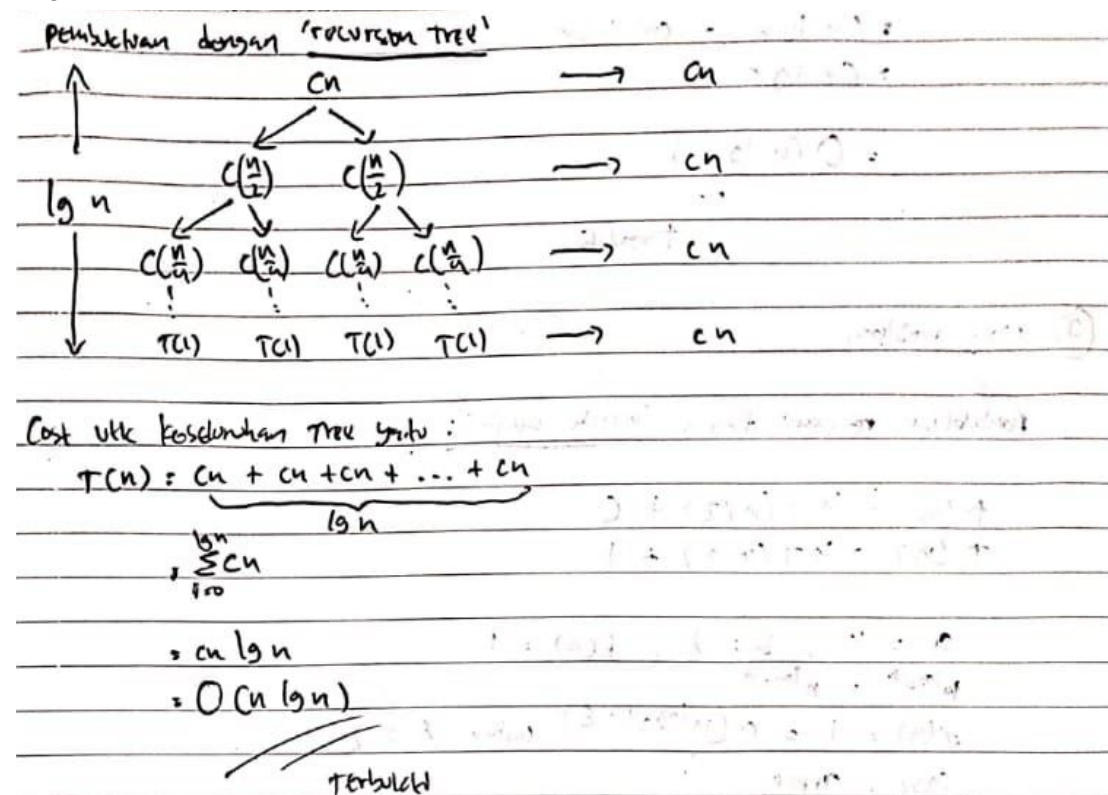 Pembuktian dengan 'recursion Tree'
Cn → Cn
C(n/2) C(n/2) → cn
lg n
C(n/4) C(n/4) C(n/4) C(n/4) → cn
T(1) T(1) T(1) T(1) → cn
Cost utk keseluruhan Tree yaitu :
T(n) = cn + cn + cn + ... + cn
lg n
= lg n Σ i=0 cn
= cn lg n
= O(n lg n)
Terbukti